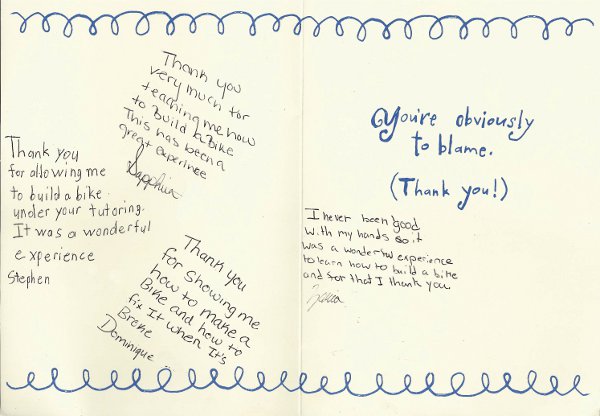 Thank you
very much for
teaching me how
to build a bike
This has been a
great experince
Sapphira
Thank you
for allowing me
to build a bike
under your tutoring.
It was a wonderful
experience
Stephen
Thank you
for showing me
how to make a
Bike and how to
fix It when It's
Broke
Dominique
You're obviously
to blame.
(Thank you!)
I never been good
with my hands so it
was a wonderful experience
to learn how to build a bike
and for that I thank you